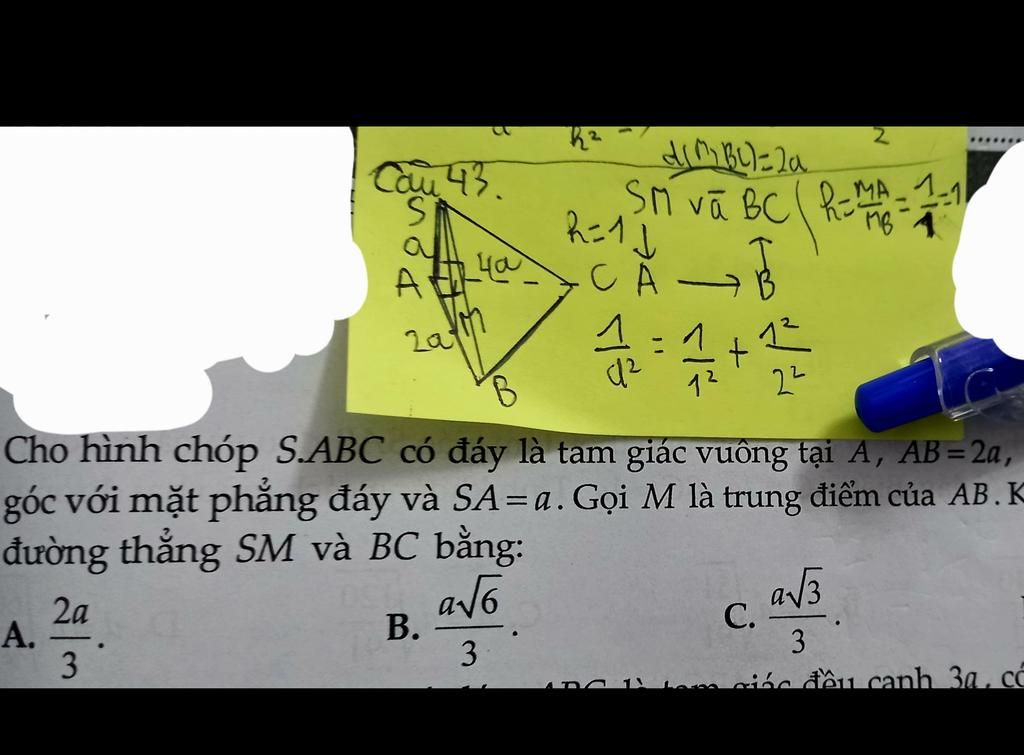 d(M,BC)=2a
Câu 43.
SM và BC
k = MA/MB = 1/1 = 1
S
a
k=1
A 4a C
A → B
2a M
B
1/d² = 1/1² + 1²/2²
Cho hình chóp S.ABC có đáy là tam giác vuông tại A, AB = 2a,
góc với mặt phẳng đáy và SA = a. Gọi M là trung điểm của AB. K
đường thẳng SM và BC bằng:
A. 2a/3. B. a√6/3. C. a√3/3.
ABC là tam giác đều cạnh 3a, có